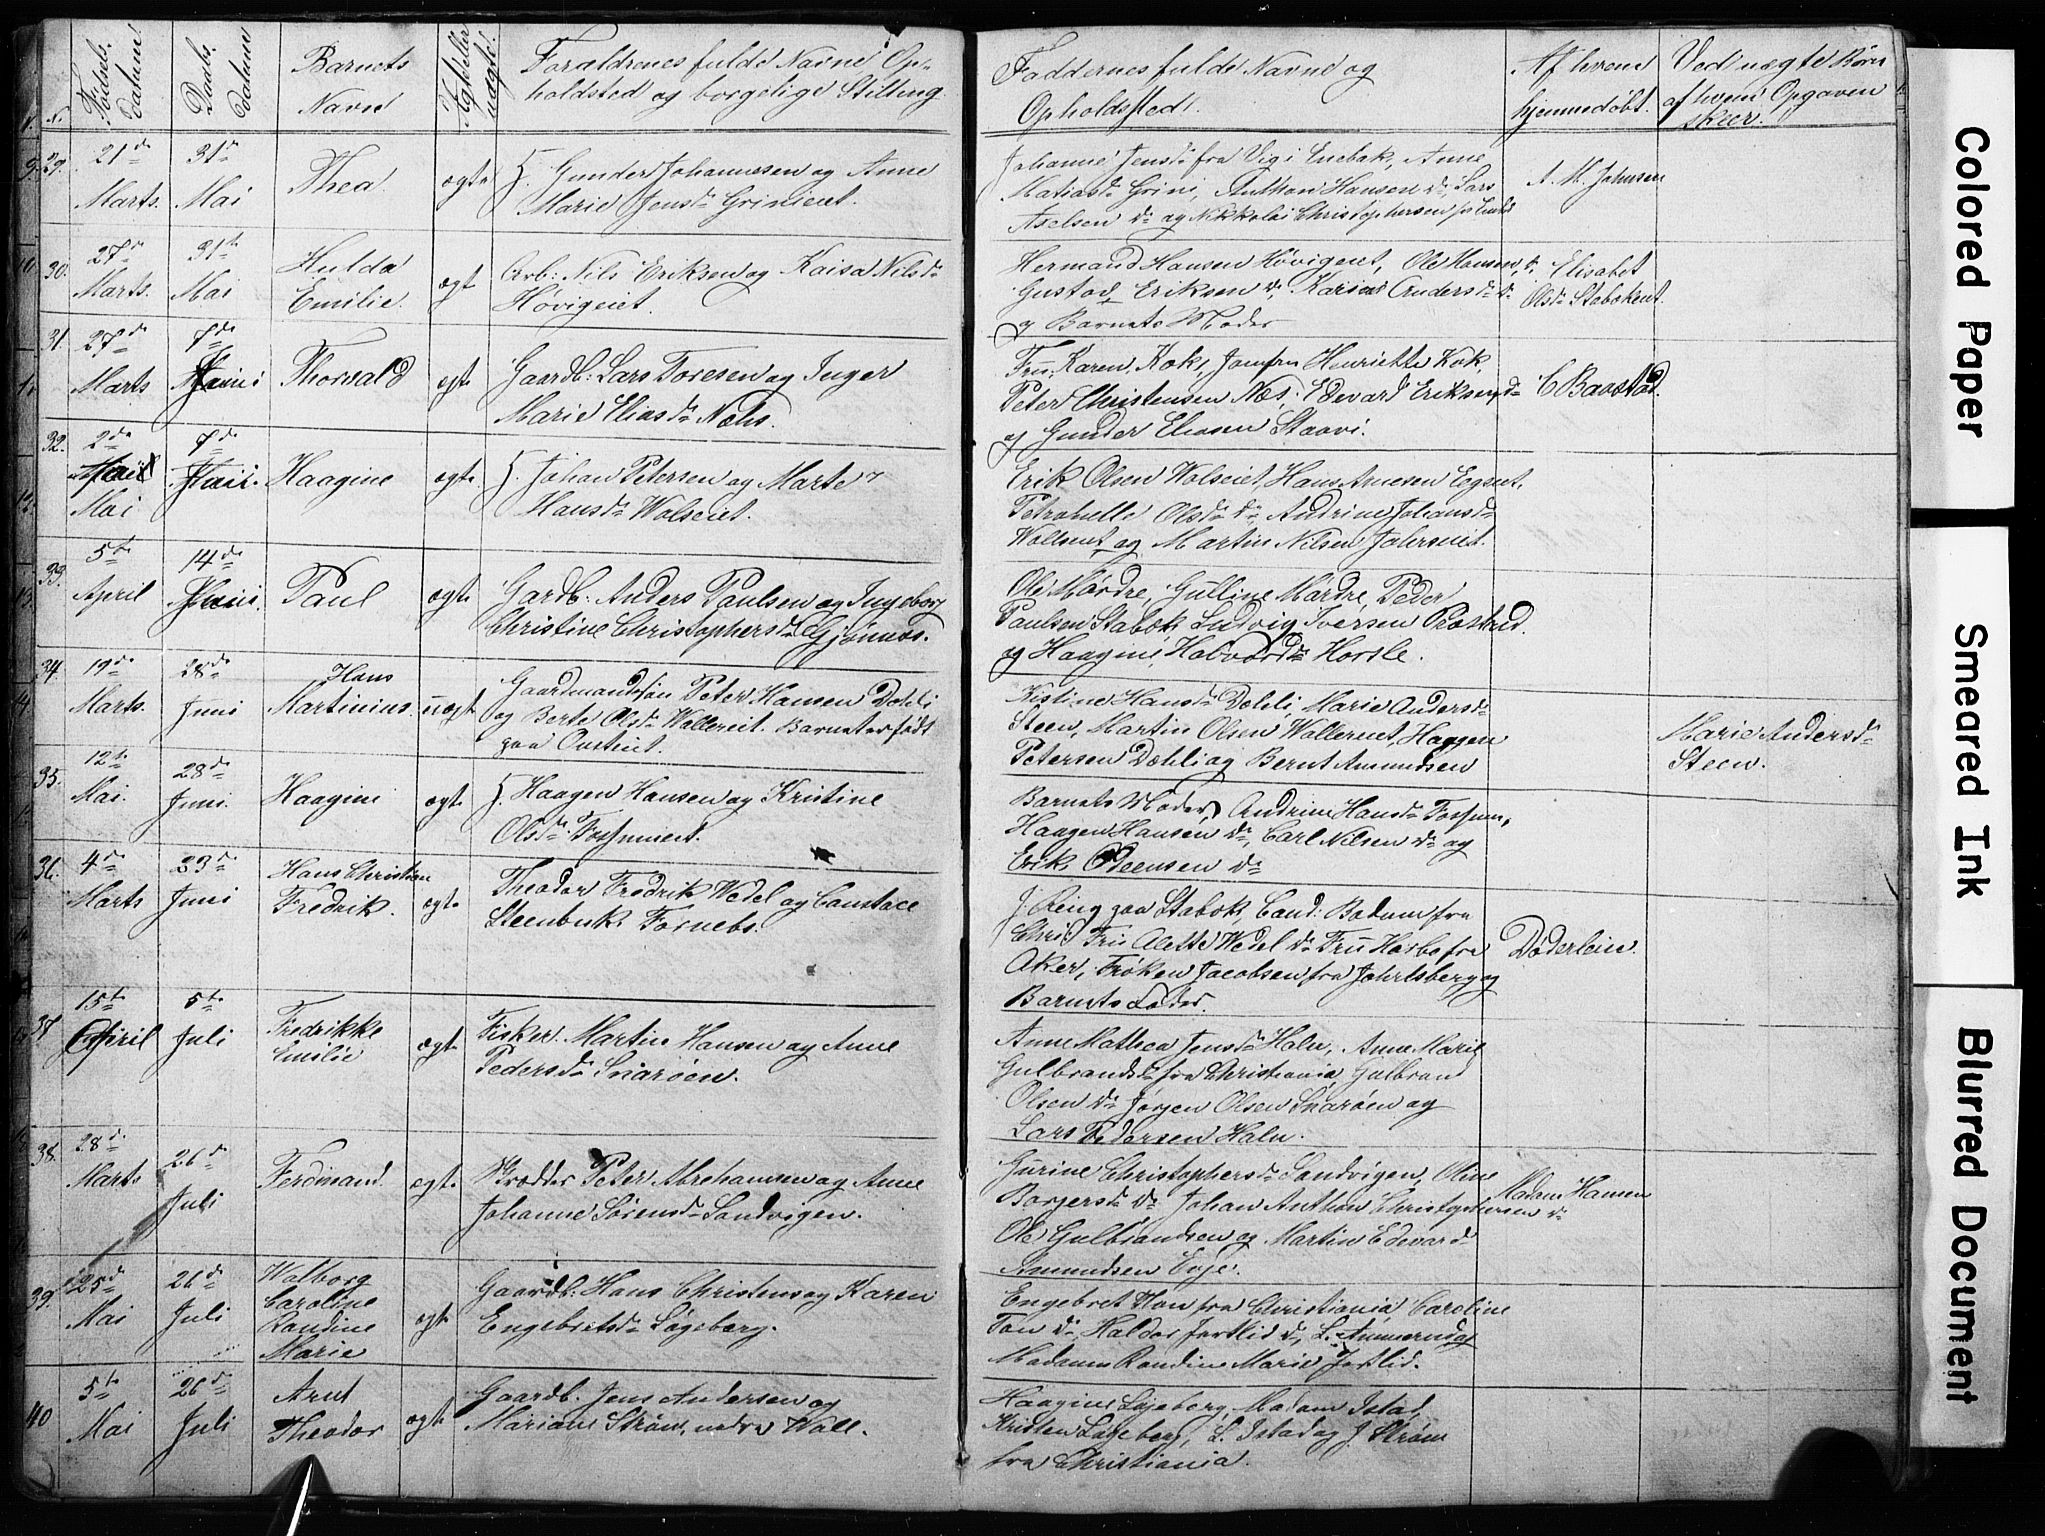 N.
Fødsels-
datum
Daabs-
datum
Barnets
Navn
Ægte eller
uægte.
Forældrenes fulde Navne Op-
holdsted og borgelige Stilling
Faddernes fulde Navne og
Opholdssted.
Af hvem
hjemmedøbt.
Ved uægte Børn
af hvem Opgaven
skeer.
29.
21de
Marts.
31te
Mai
Thea.
ægte
Gunder Johannesen og Anne
Marie Jensdr Grinieiet.
Johanne Jensdr fra Vig i Enebak, Anne
Matiasdr Grini, Anthon Hansen do Lars
Axelsen do og Nikkolai Christophersen
A. M. Johnsen
30.
27de
Marts.
31te
Mai
Hulda
Emilie.
ægte
Arb: Nils Eriksen og Kaisa Nilsdr
Høvigeiet.
Hermand Hansen Høvigeiet, Ole Hansen do,
Gustad Eriksen do, Karine Andersdr do
og Barnets Moder
Elisabet
Olsdr Stabekeiet.
31.
27de
Marts
7de
Juni
Thorvald
ægte
Gaardb: Lars Toresen og Inger
Marie Eliasdr Næhs.
Fru Karen Kok, Jomfru Henriette Kok,
Peter Christensen Næs, Edevard Eriksen do
og Gunder Eliesen Staavi.
C Baastad.
32.
2den
Mai
7de
Juni.
Haagine
ægte.
Johan Petersen og Marte
Hansdr Wolseiet.
Erik Olsen Wolseiet, Hans Arnesen Eegeiet,
Petronelle Olsdr do, Andrine Johansdr
Wolseiet og Martin Nilsen Jahreiet.
33.
5te
April
14de
Juni.
Paul
ægte
Gardb: Anders Paulsen og Ingeborg
Christine Christophersdr Gjønnes.
Ole Mørdre, Gulline Mørdre, Peder
Paulsen Stabæk, Ludvig Iversen Præstrud.
og Haagine Halvordr Horsle.
34.
19de
Marts.
28de
Juni
Hans
Martinius.
uægte
Gaardmandssøn Peter Hansen Dæhli
og Berte Olsdr Wallereiet. Barnet er født
paa Ousteiet.
Kistine Hansdr Dæhli, Marie Andersdr
Steen, Martin Olsen Wallereiet, Haagen
Petersen Dæhli og Bernt Amundsen
Marie Andersdr
Steen.
35.
12te
Mai.
28de
Juni.
Haagine
ægte
Haagen Hansen og Kristine
Olsdr Fossumeiet.
Barnets Moder, Andrine Hansdr Fossum,
Haagen Hansen do, Carl Nilsen do og
Erik Evensen do
36.
4de
Marts
23de
Juni
Hans Christian
Fredrik.
ægte
Theodor Fredrik Wedel og Constace
Steenbuk Fornebo.
J. Ring paa Stabæk, Cand: Bodum fra
Chri: Fru Alette Wedel do Fru Harbo fra
Aker, Frøken Jacobsen fra Jahrlsberg og
Barnets Fader.
Døderlein.
37
15te
April
5te
Juli
Fredrikke
Emilie
ægte
Fisker Martin Hansen og Anne
Pedersdr Snarøen.
Anne Mathea Jensdr Haln, Anne Marie
Gulbrandsdr fra Christiania, Gulbran
Olsen do Jørgen Olsen Snarøen og
Lars Pedersen Haln.
38.
28de
Marts
26de
Juli
Ferdinand.
ægte.
Peter Abrahamsen og Anne
Johanne Sørensdr Sandvigen.
Gurine Christophersdr Sandvigen, Oline
Borgersdr do Johan Anthon Christophersen do
Ole Gulbrandsen og Martin Edevard
Amundsen Evje.
Madam Hansen
39.
25de
Mai
26de
Juli
Walborg
Caroline
Randine
Marie
ægte
Gaardb. Hans Christens og Karen
Engebretsdr Løgeberg.
Engebret Ton fra Christiania, Caroline
Ton do, Haldor Jortlid do, L. Ammerud og
Madame Randine Marie Jortlid.
40
5te
Mai
26de
Juli
Arnt
Theodor
ægte
Gaardb. Jens Andersen og
Mariane Strøm, nedre Wall.
Haagine Løgeberg, Madam Istad,
Kristen Løgeberg, L. Istad og J. Strøm
fra Christiania.
Colored Paper
Smeared Ink
Blurred Document